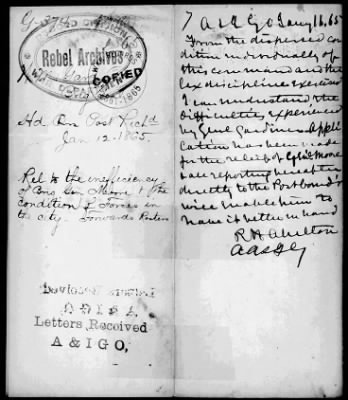 Rebel Archives
COPIED
Hd. Qrs Post Richd
Jan 12. 1865.
Rel to the inefficiency
of Brig Gen Moore & the
condition of Forces in
the city. Forwards
Letters Received
A & IGO,
7 A & I G O Jany 16. 65
From the dispersed con
dition individually of
this command and the
lax discipline exercised
I can understand the
difficulties experienced
by Genl Gardner. Appli
cation has been made
for the relief of Moore
reporting
directly to the Post
will enable him to
have it better in hand
R H Chilton